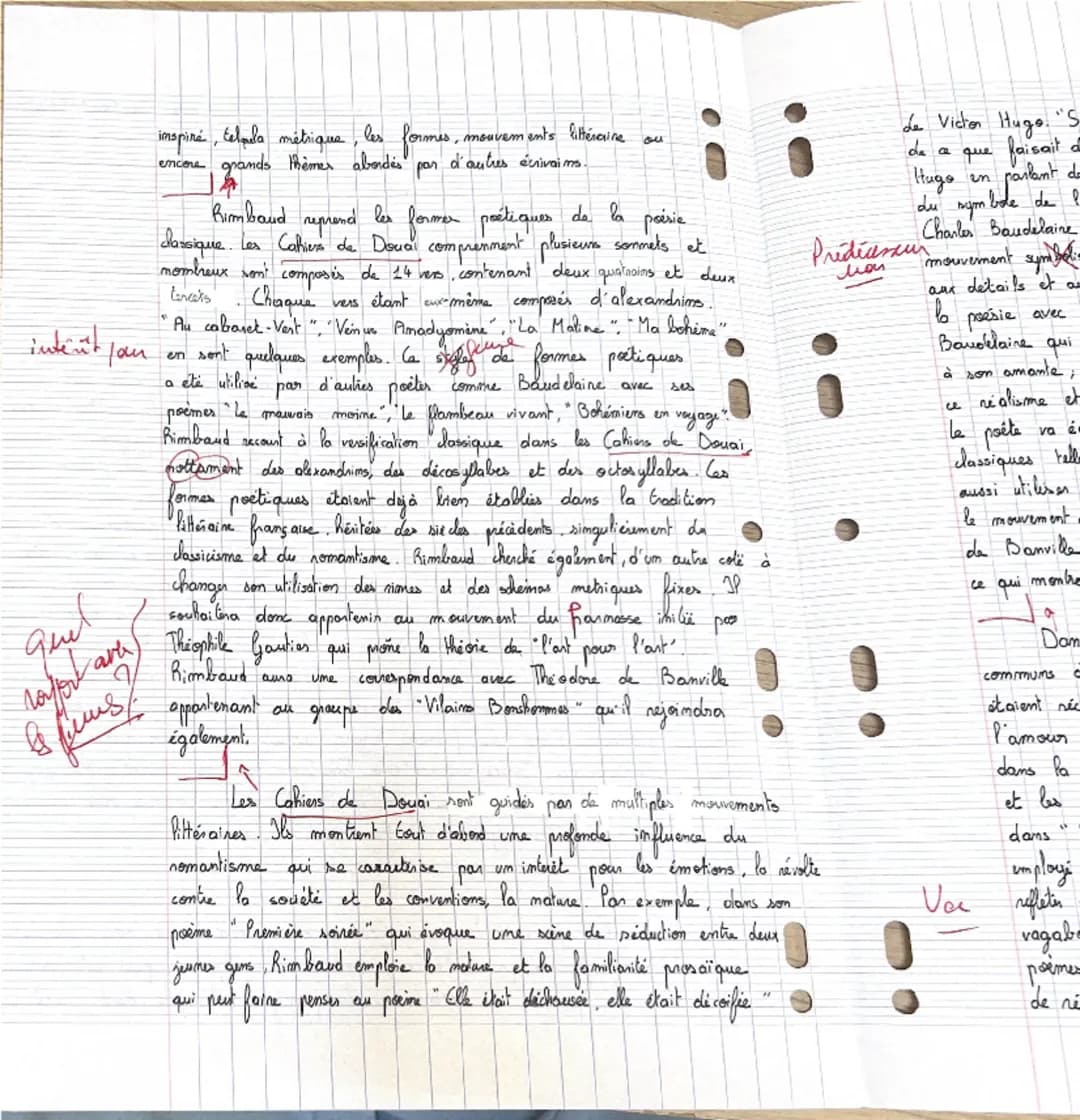 inspiré, telquela métrique, les formes, mouvements littéraire ou
encore grands thèmes abordés par d'autres écrivains.
Rimbaud reprend les formes poétiques de la poésie
classique. Les Cahiers de Douai comprennent plusieurs sonnets et
nombreux sont composés de 14 vers, contenant deux quatrains et deux
tercets. Chaque vers étant eux-même composés d'alexandrins.
"Au cabaret-Vert", "Vénus Anadyomène", "La Maline", "Ma bohème"
intérêt / our
en sont quelques exemples. Ce genre de formes poétiques
a été utilisé par d'autres poètes comme Baudelaire avec ses
poèmes "Le mauvais moine", "Le flambeau vivant, "Bohémiens en voyage".
Rimbaud recourt à la versification classique dans les Cahiers de Douai,
nottament des alexandrins, des décasyllabes et des octosyllabes. Ces
formes poétiques étaient dejà bien établies dans la tradition
littéraire française, héritées des siècles précédents, singulièrement du
classicisme et du romantisme. Rimbaud cherché également, d'un autre coté à
changer son utilisation des rimes et des schémas metriques fixes. Il
souhaitera donc appartenir au mouvement du Parnasse initié par
Théophile Gautier qui prône la théorie de "l'art pour l'art".
Rimbaud aura une correspondance avec Théodore de Banville
appartenant au groupe des "Vilains Bonshommes" qu'il rejoindra
également.
Quel
rapport avec
?
Les Cahiers de Douai sont guidés par de multiples mouvements
littéraires. Ils montrent tout d'abord une profonde influence du
romantisme qui se caractérise par un intérêt pour les émotions, la révolte
contre la société et les conventions, la nature. Par exemple, dans son
poème "Première soirée" qui évoque une scène de séduction entre deux
jeunes gens, Rimbaud emploie la nature et la familiarité prosaïque
qui peut faire penser au poème "Elle était déchaussée, elle était décoiffée"
de Victor Hugo. "S
de ce que faisait d
Hugo en parlant de
du symbole de l
Charles Baudelaire
Prédécesseur
non
mouvement
aux détails et au
la poésie avec
Baudelaire qui
à son amante,
ce réalisme et
le poète va é
classiques tell
aussi utiliser
le mouvement
de Banville
ce qui montre
Dan
communs
étaient réc
l'amour
dans la
et les
dans "
employé
Voc
refléter
vagab
poèmes
de ré